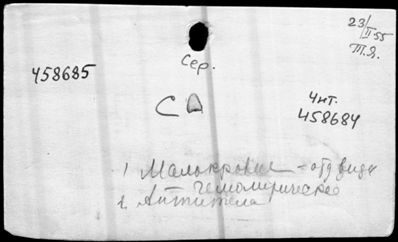 23/II-55
Т.Я.
Сер.
458685
СА
Чит.
458684
1 Малокровие - отд виды
гемолирическое
2. Антитела